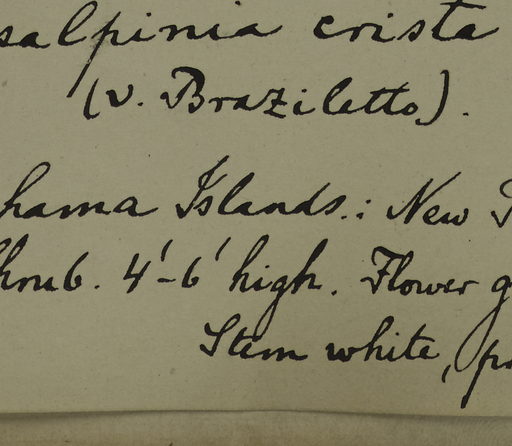 salpinia crista
(v. Braziletto).
hama Islands.: New
hrub. 4'-6' high. Flower g
Stem white, p